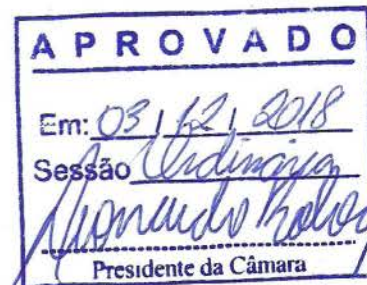 APROVADO
Em: 03/12/2018
Sessão Ordinária
Presidente da Câmara